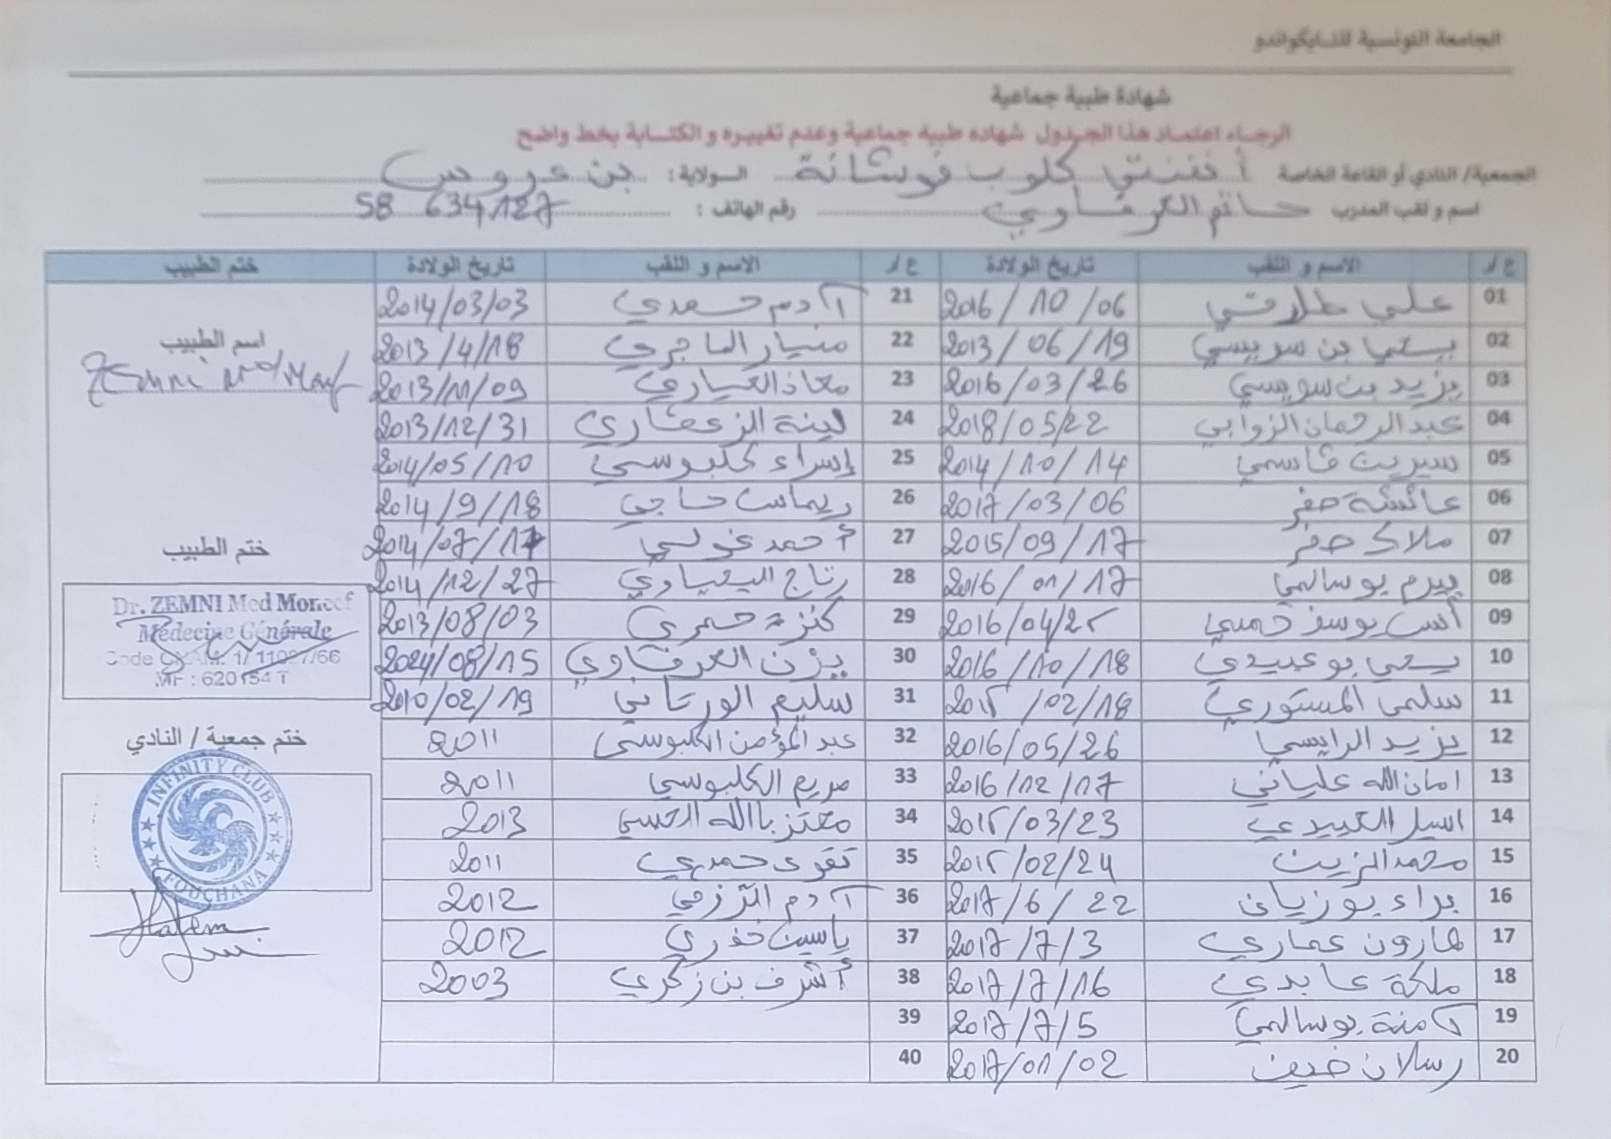 الجامعة التونسية للتايكواندو
شهادة طبية جماعية
الرجاء اعتماد هذا الجدول شهادة طبية جماعية وعدم تغييره و الكتابة بخط واضح
الجمعية/ النادي أو القاعة الخاصة أنفنتي كلوب فوشانة الولاية : بن عروس
اسم و لقب المدرب حاتم العرفاوي رقم الهاتف : 58 634127
ع/ر الاسم و اللقب تاريخ الولادة ع/ر الاسم و اللقب تاريخ الولادة ختم الطبيب
01 علي طلارقي 2016/10/06 21 آدم حمدي 2014/03/03
اسم الطبيب
02 يحي بن سويسي 2013/06/19 22 منيار الماجري 2013/4/18
Zemni
03 يزيد بن سويسي 2016/03/26 23 معاذ العياري 2013/11/09
04 عبد الرحمان الزوابي 2018/05/22 24 لينة الزعفاري 2013/12/31
05 سيرين قاسمي 2014/10/14 25 إسراء كلبوسي 2014/05/10
06 عائشة صفر 2017/03/06 26 ريماس حاجي 2014/9/18
07 ملاك صفر 2015/09/17 27 أحمد غولسي 2014/07/17
ختم الطبيب
08 بيرم بوسالمي 2016/01/17 28 رتاج اليحياوي 2014/12/27
Dr. ZEMNI Med Moncef
09 أنس يوسف خميسي 2016/04/25 29 كنزة حمري 2013/08/03
Médecine Générale
10 يحي بوعبيدي 2016/10/18 30 يزن العرفاوي 2024/08/15
Code CNAM: 1/ 11027/66
MF : 620154 T
11 سلمى المستوري 2015/02/18 31 سليم الورتاني 2010/02/19
12 يزيد الرايسي 2016/05/26 32 عبد المؤمن الكلبوسي 2011
ختم جمعية / النادي
13 امان الله علياني 2016/12/17 33 مريم الكلبوسي 2011
INFINITY CLUB
14 اسيل العبيدي 2015/03/23 34 معتز باالله الحسي 2013
15 محمد الزين 2015/02/24 35 تقوى حمدي 2011
FOUCHANA
16 براء بوزيان 2017/6/22 36 آدم الڨزمي 2012
Hatem
17 هارون عماري 2017/7/3 37 ياسين خذري 2012
18 ملكة عابدي 2017/7/16 38 أشرف بن زكري 2003
19 آمنة بوسالمي 2017/7/5 39
20 رسلان ضيف 2017/01/02 40